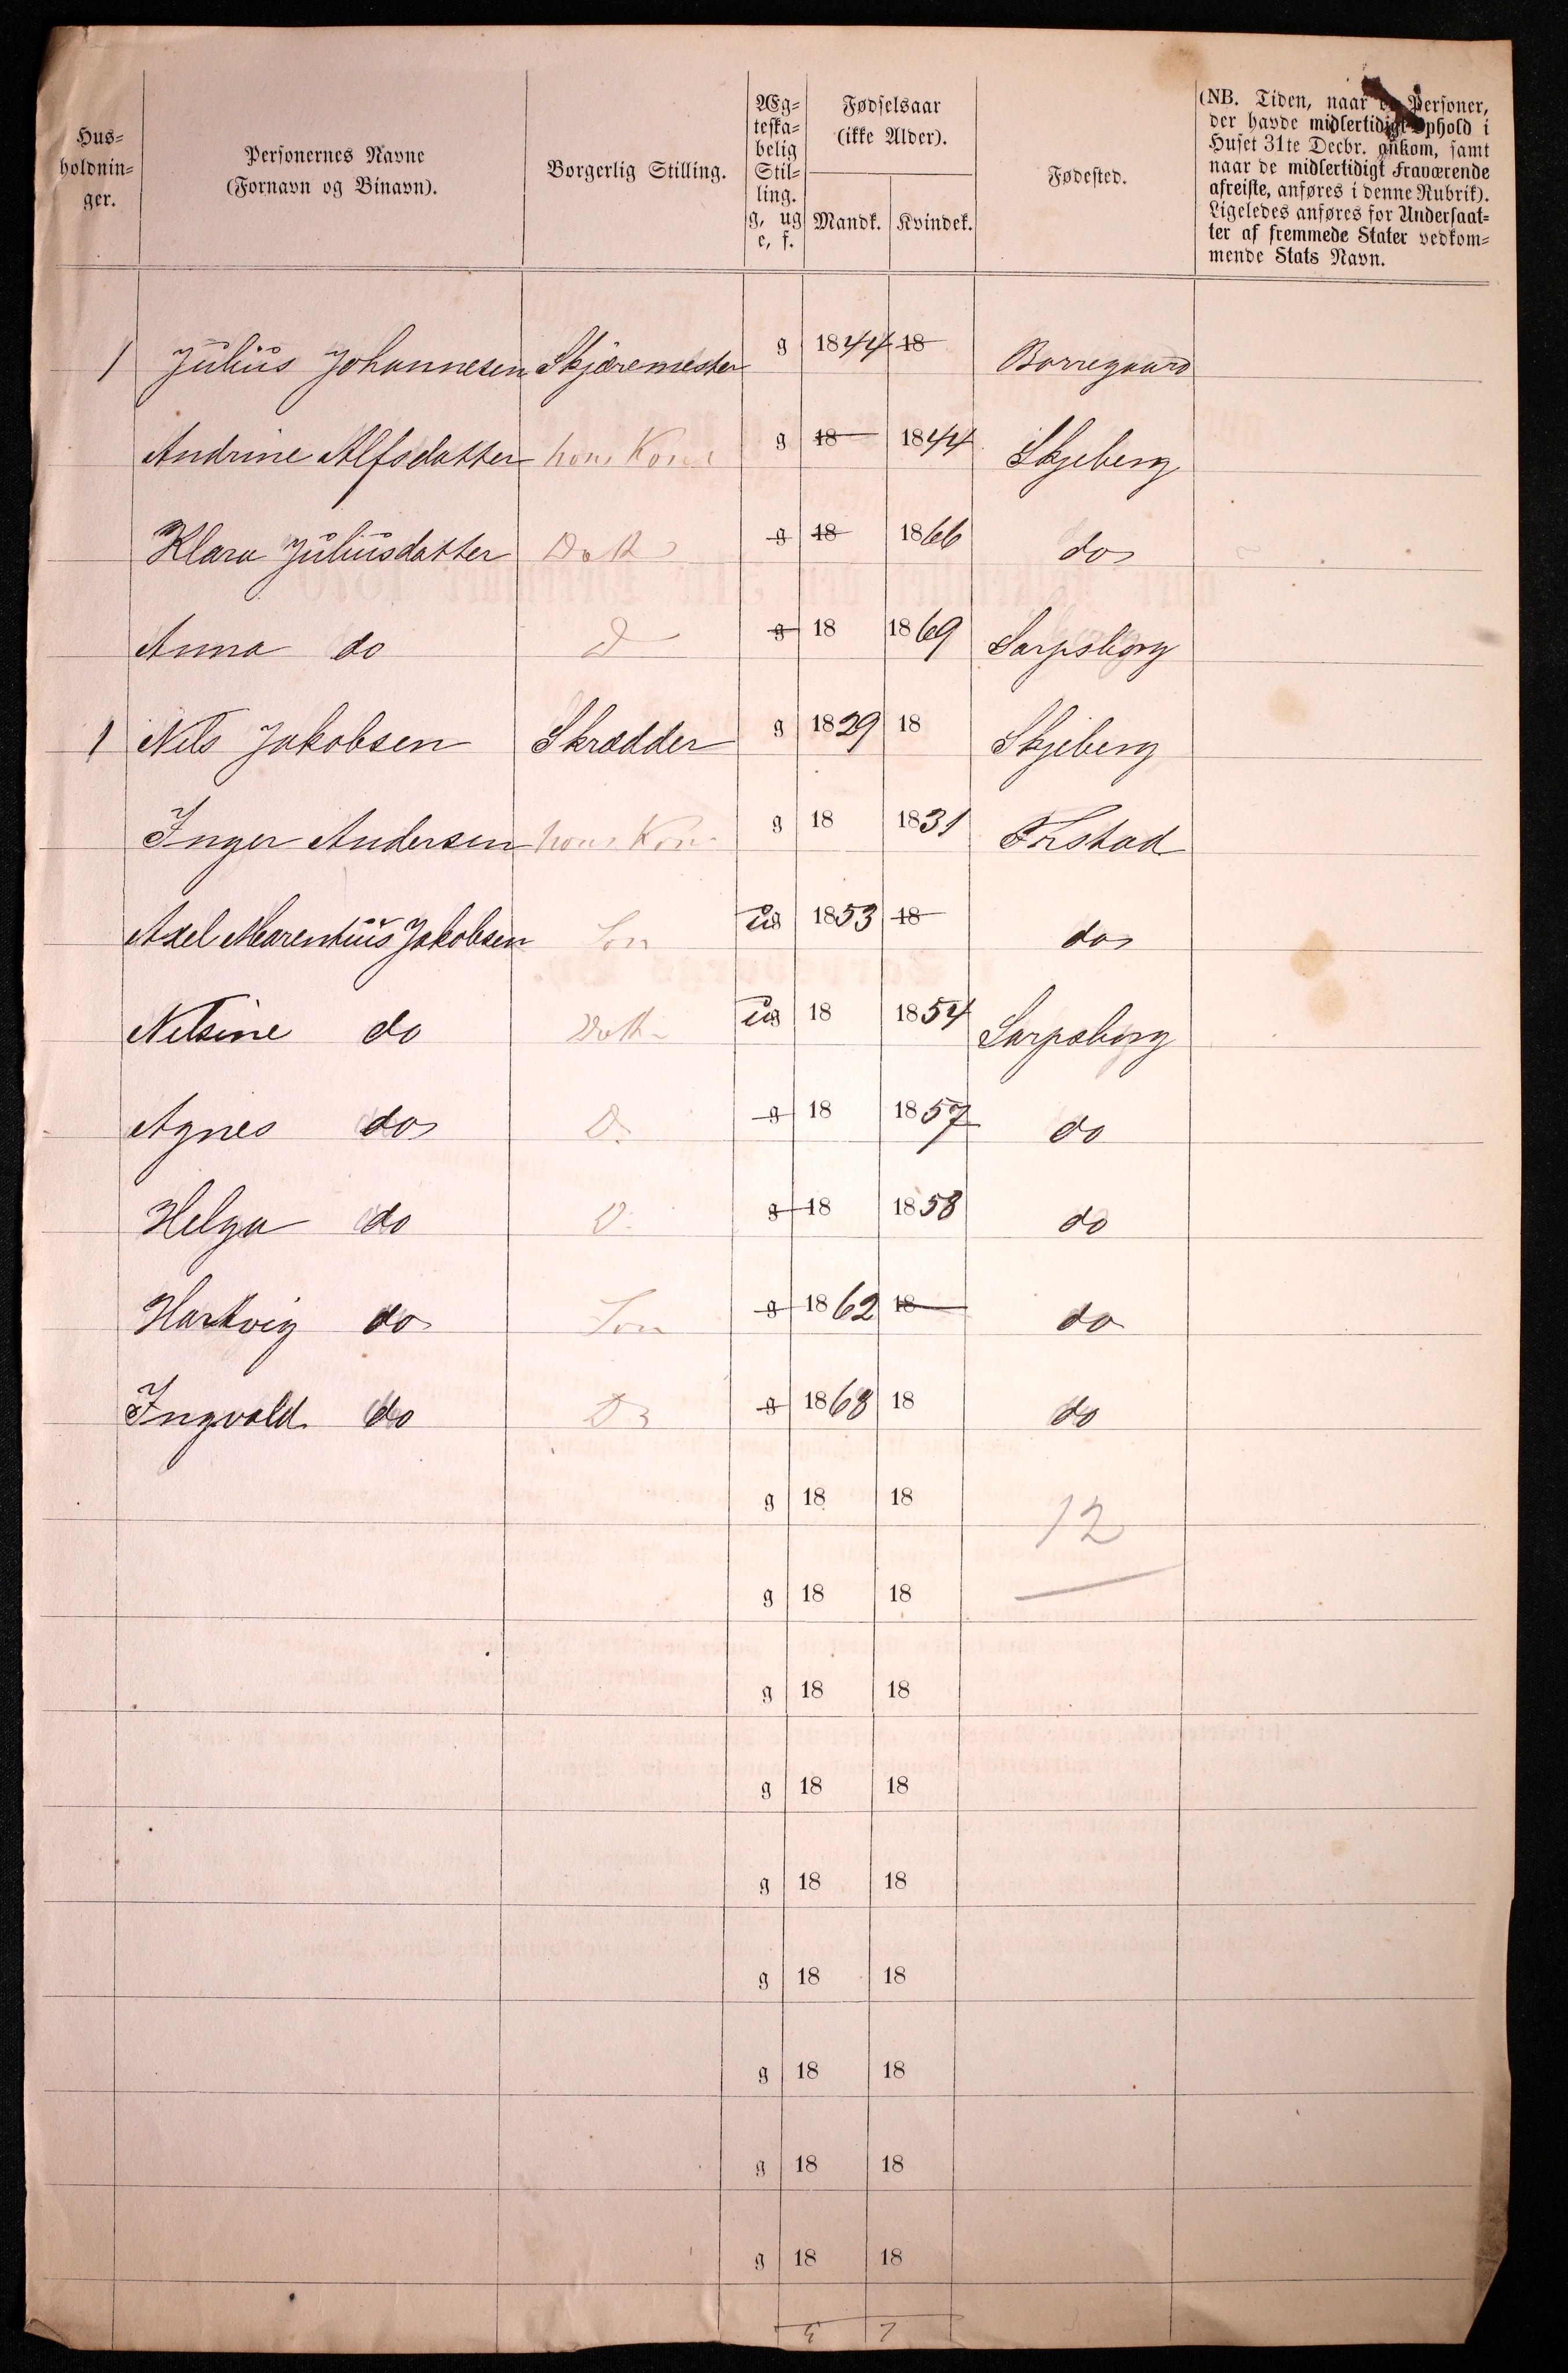 Hus=
holdnin=
ger.
Personernes Navne
(Fornavn og Binavn).
Borgerlig Stilling.
Æg=
teska=
belig
Stil=
ling.
g, ug
e, f.
Fødselsaar
(ikke Alder).
Mandk. Kvindek.
Fødested.
(NB. Tiden, naar Personer,
der havde midlertidigt Ophold i
Huset 31te Decbr. ankom, samt
naar de midlertidigt Fraværende
afreiste, anføres i denne Rubrik).
Ligeledes anføres for Undersaat=
ter af fremmede Stater vedkom=
mende Stats Navn.
1 Julius Johannesen Skjæremester g 1844 18 Borregaard
Andrine Alfsdatter hans Kone g 18 1844 Skjeberg
Klara Juliusdatter Datt g 18 1866 do
Anna do D g 18 1869 Sarpsborg
1 Nils Jakobsen Skrædder g 1829 18 Skjeberg
Inger Andersen hans Kone g 18 1831 Frstad
Axel Marentius Jakobsen Søn ug 1853 18 do
Nilsine do Datt ug 18 1854 Sarpsborg
Agnes do D. g 18 1857 do
Helga do D. g 18 1858 do
Hartvig do Søn g 1862 18 do
Ingvald do g 1868 18 do
g 18 18 12
g 18 18
g 18 18
g 18 18
g 18 18
g 18 18
g 18 18
g 18 18
g 18 18